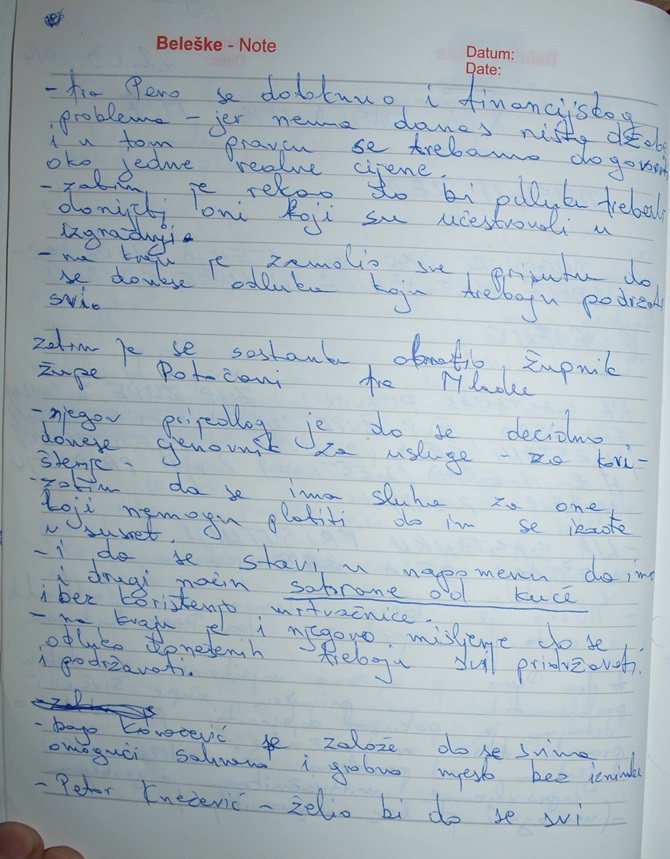 Beleške - Note
Datum:
Date:
- fra Pero se dotaknuo i financijskog
problema - jer nema danas ništa džabe
i u tom pravcu se trebamo dogovoriti
oko jedne realne cijene.
- zatim je rekao da bi odluku trebali
donijeti oni koji su učestvovali u
izgradnji.
- na kraju je zamolio sve prisutne da
se donese odluka koju trebaju podržati
svi.
zatim je se sastanku obratio župnik
župe Potočani fra Mladen
- njegov prijedlog je da se decidno
donese cjenovnik za usluge - za kori-
štenje -
- zatim da se ima sluha za one,
koji nemogu platiti da im se izađe
u susret.
- i da se stavi u napomenu da ima
i drugi način sahrane od kuće
i bez korištenja mrtvačnice.
- na kraju je i njegovo mišljenje da se
odluka donešenih trebaju svi pridržavati
i podržavati.
- Kovačević se zalaže da se svima
omogući sahrana i grobno mjesto bez
- Petar Knežević - želio bi da se svi